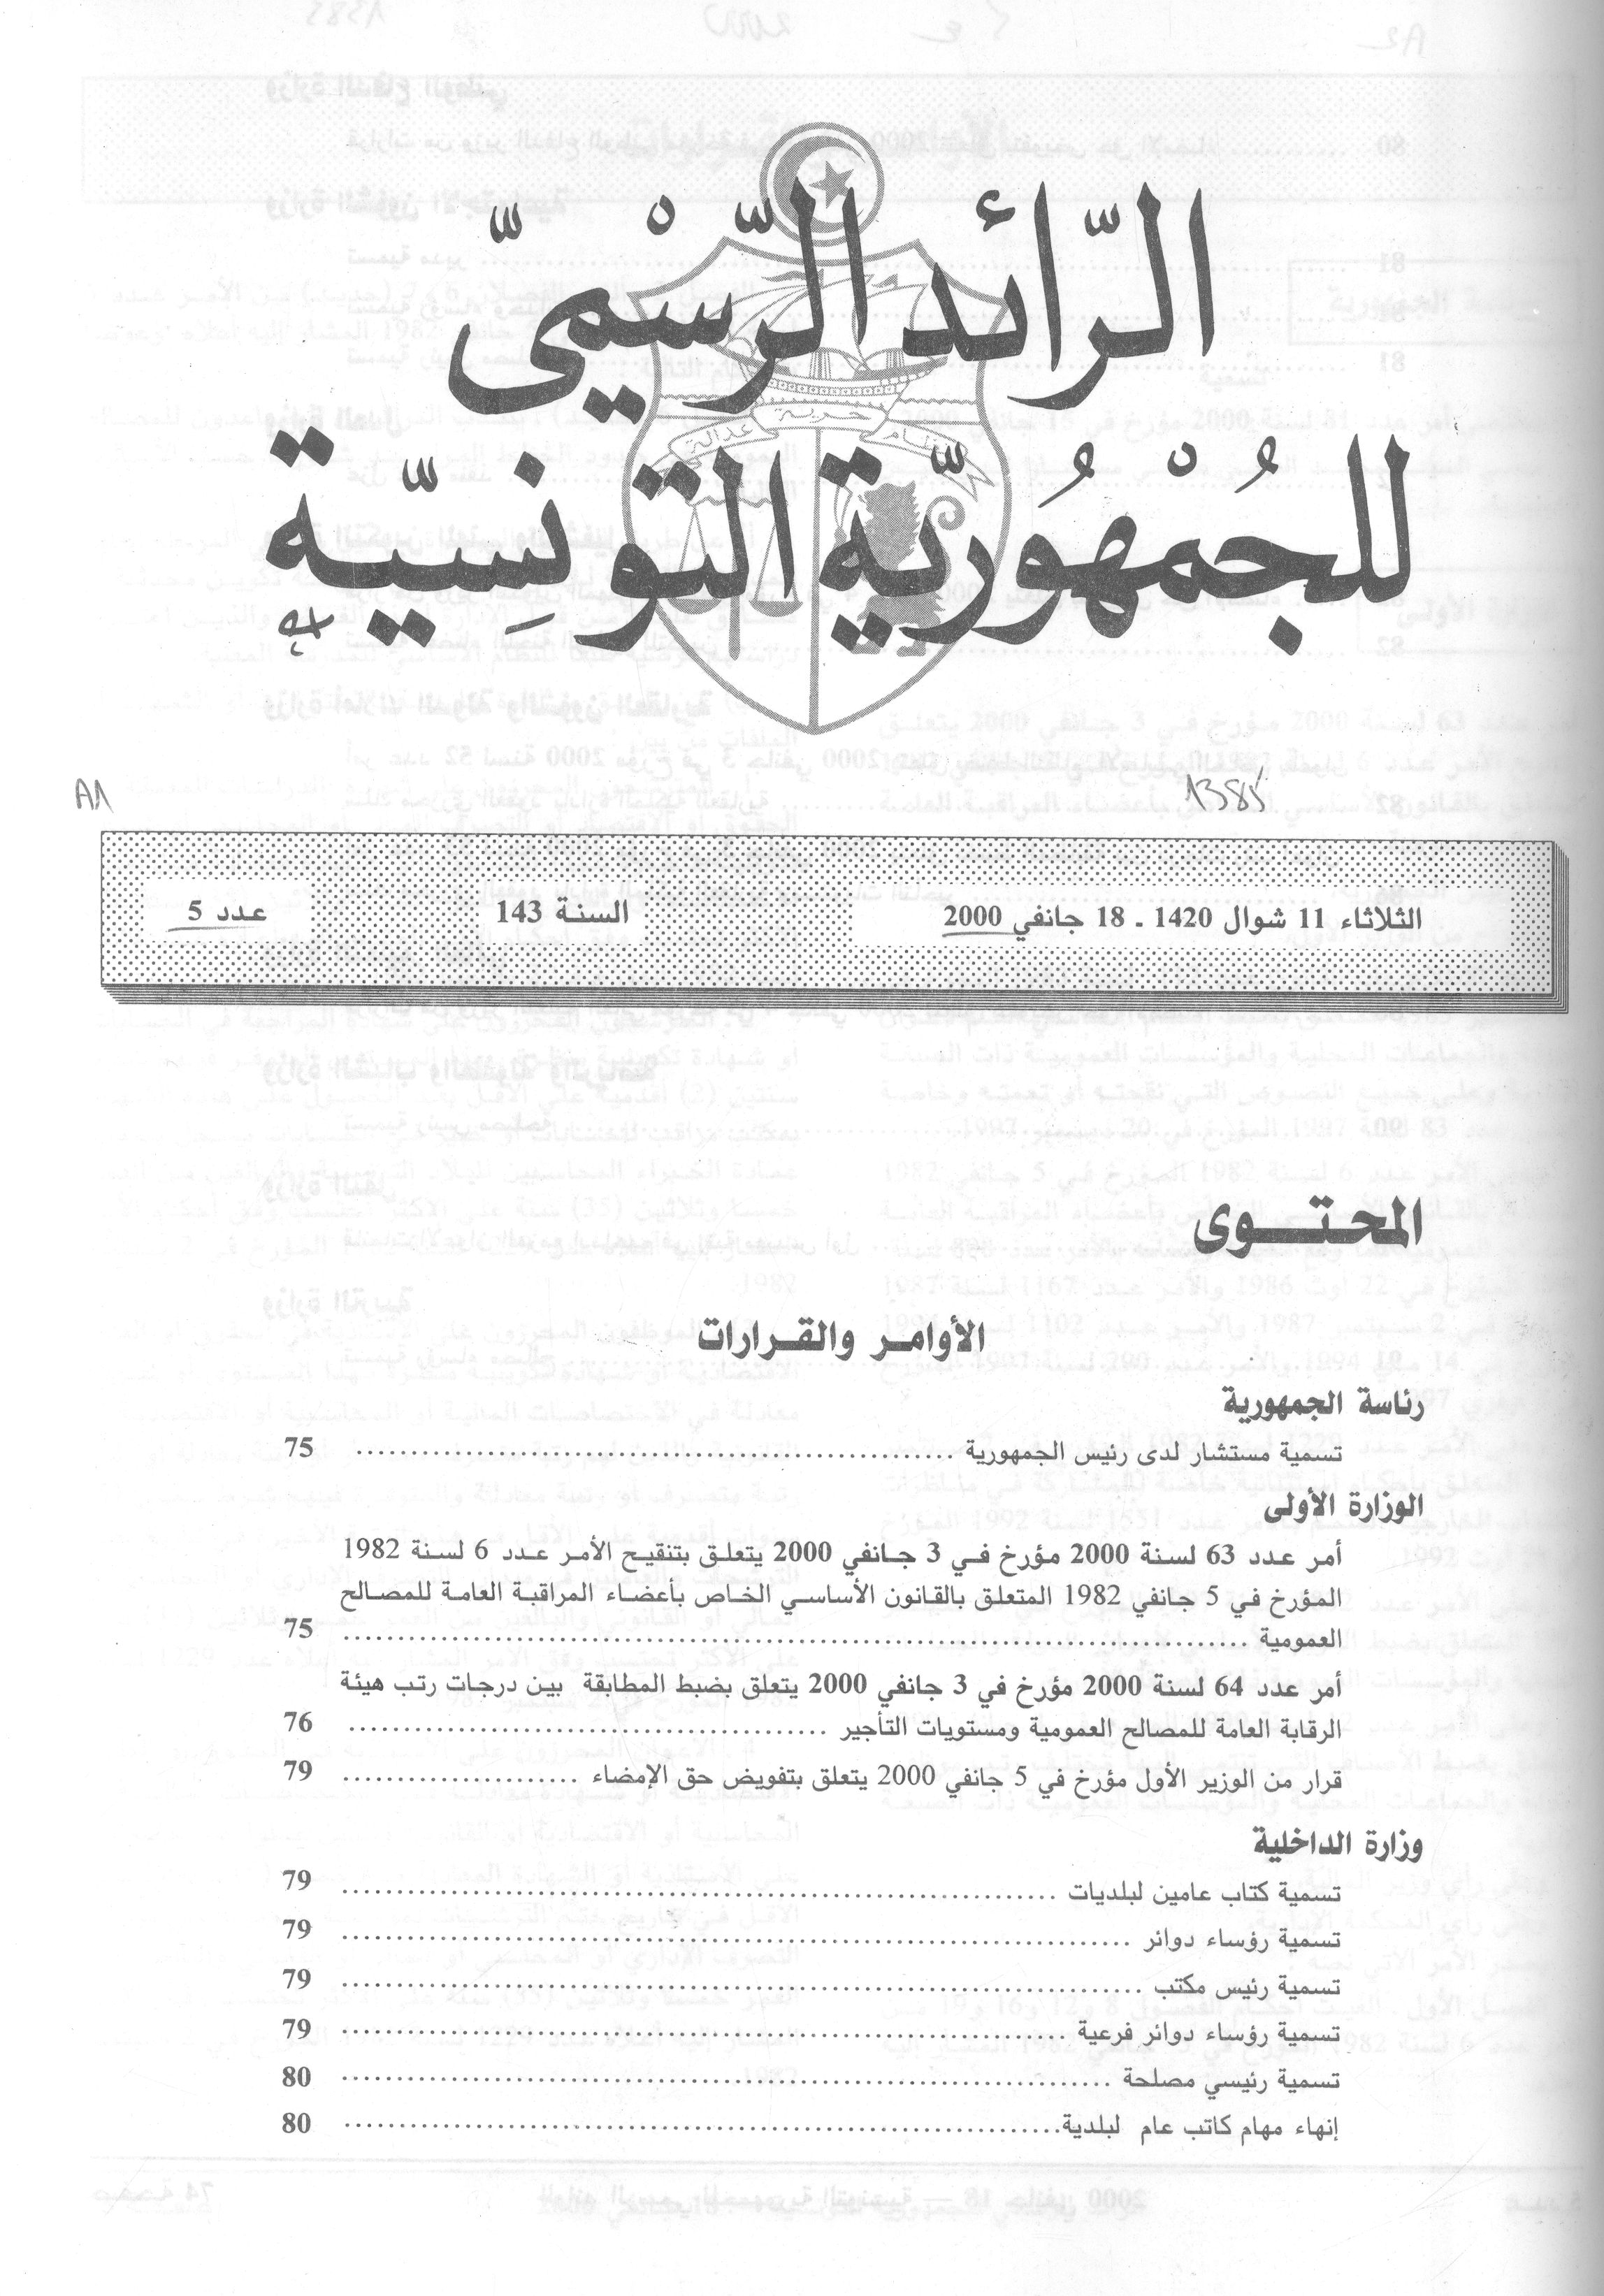 الرّائد الرّسْميّ
للجُمْهُوريّة التّونِسيّة
نظام حرية عدالة
A1
1385
الثلاثاء 11 شوال 1420 ـ 18 جانفي 2000 السنة 143 عدد 5
المحتوى
الأوامر والقرارات
رئاسة الجمهورية
تسمية مستشار لدى رئيس الجمهورية ........ 75
الوزارة الأولى
أمر عدد 63 لسنة 2000 مؤرخ في 3 جانفي 2000 يتعلق بتنقيح الأمر عدد 6 لسنة 1982
المؤرخ في 5 جانفي 1982 المتعلق بالقانون الأساسي الخاص بأعضاء المراقبة العامة للمصالح
العمومية ........ 75
أمر عدد 64 لسنة 2000 مؤرخ في 3 جانفي 2000 يتعلق بضبط المطابقة بين درجات رتب هيئة
الرقابة العامة للمصالح العمومية ومستويات التأجير ........ 76
قرار من الوزير الأول مؤرخ في 5 جانفي 2000 يتعلق بتفويض حق الإمضاء ........ 79
وزارة الداخلية
تسمية كتاب عامين لبلديات ........ 79
تسمية رؤساء دوائر ........ 79
تسمية رئيس مكتب ........ 79
تسمية رؤساء دوائر فرعية ........ 79
تسمية رئيسي مصلحة ........ 80
إنهاء مهام كاتب عام لبلدية ........ 80